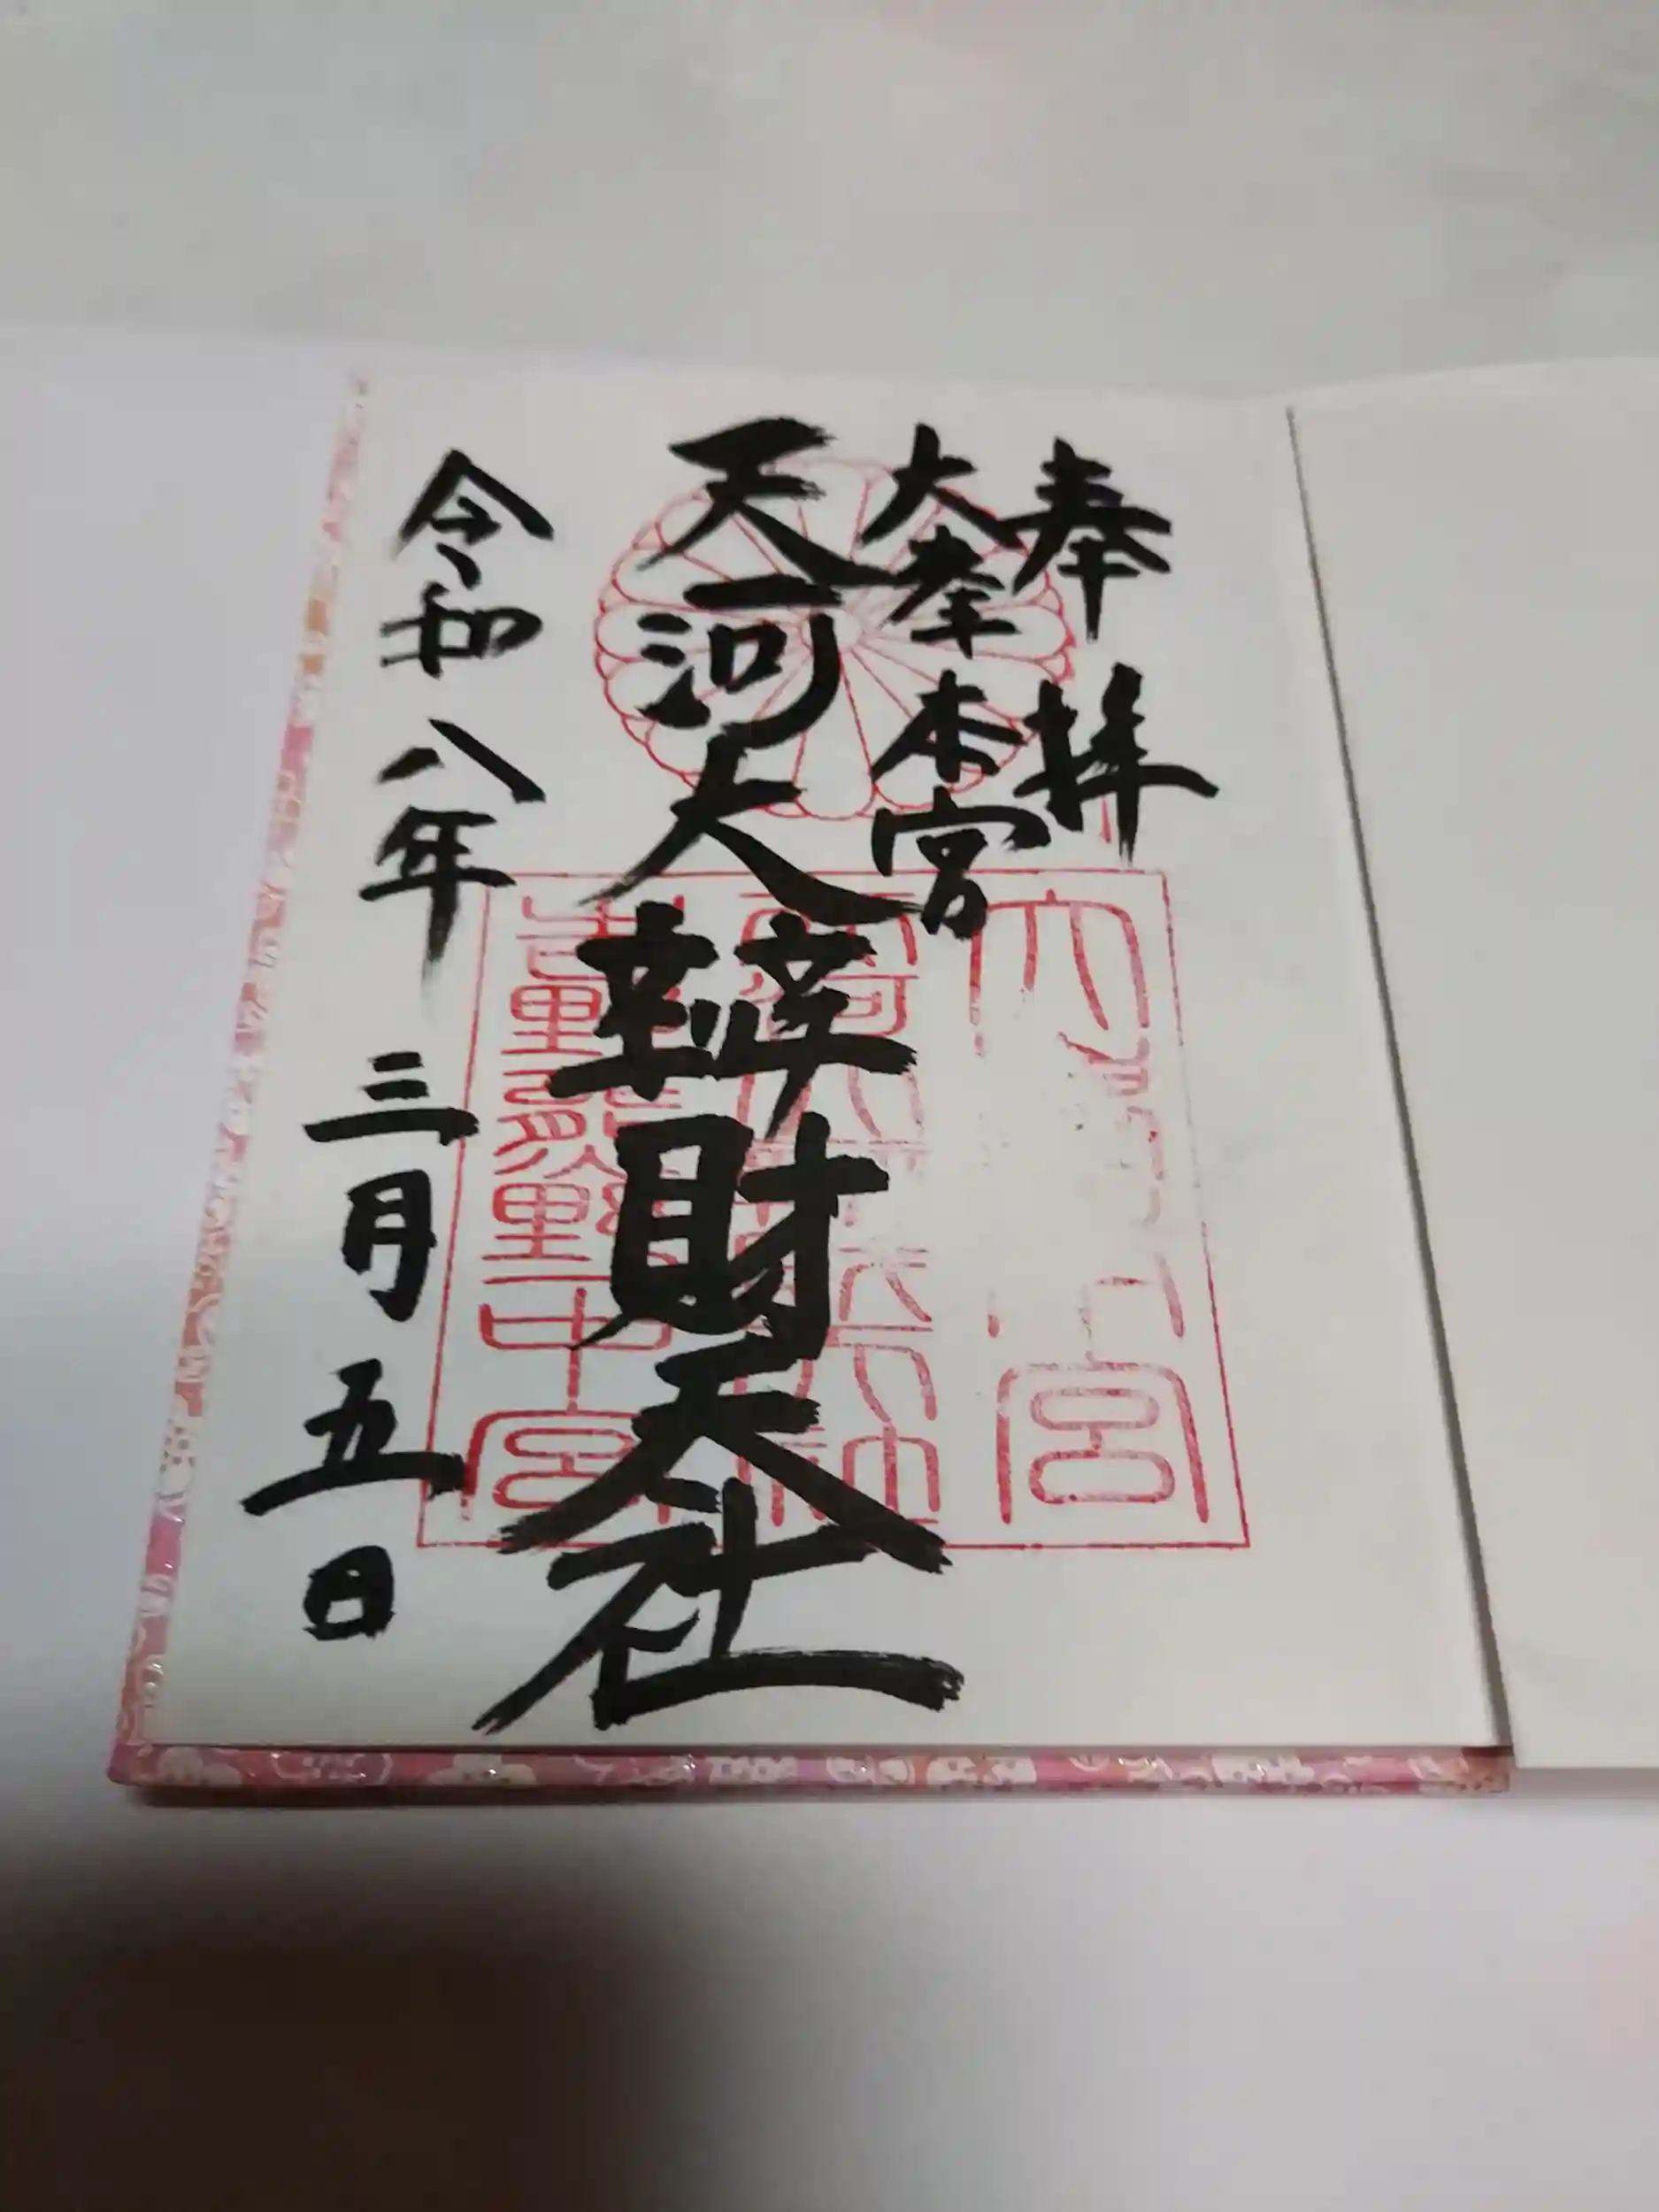 奉拝
大峯本宮
天河大辨財天社
令和八年三月五日
吉野熊野中宮